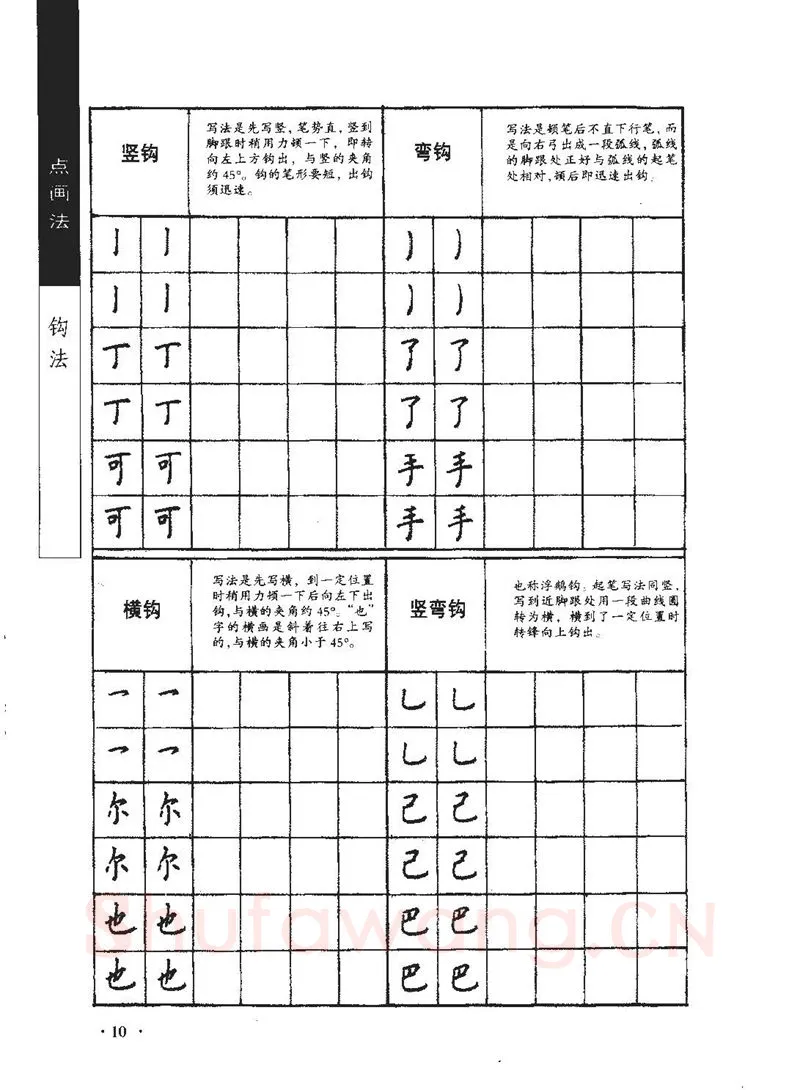 点画法
钩法
竖钩
写法是先写竖，笔势直，竖到
脚跟时稍用力顿一下，即转
向左上方钩出，与竖的夹角
约45°。钩的笔形要短，出钩
须迅速。
弯钩
写法是顿笔后不直下行笔，而
是向右弓出成一段弧线，弧线
的脚跟处正好与弧线的起笔
处相对，顿后即迅速出钩。
亅 亅
亅 亅
丁 丁
丁 丁
可 可
可 可
了 了
了 了
手 手
手 手
横钩
写法是先写横，到一定位置
时稍用力顿一下后向左下出
钩，与横的夹角约45°。“也”
字的横画是斜着往右上写
的，与横的夹角小于45°。
竖弯钩
也称浮鹅钩。起笔写法同竖，
写到近脚跟处用一段曲线圆
转为横，横到了一定位置时
转锋向上钩出。
乛 乛
乛 乛
尔 尔
尔 尔
也 也
也 也
乚 乚
乚 乚
己 己
己 己
巴 巴
巴 巴
Shufawang.CN
·10·